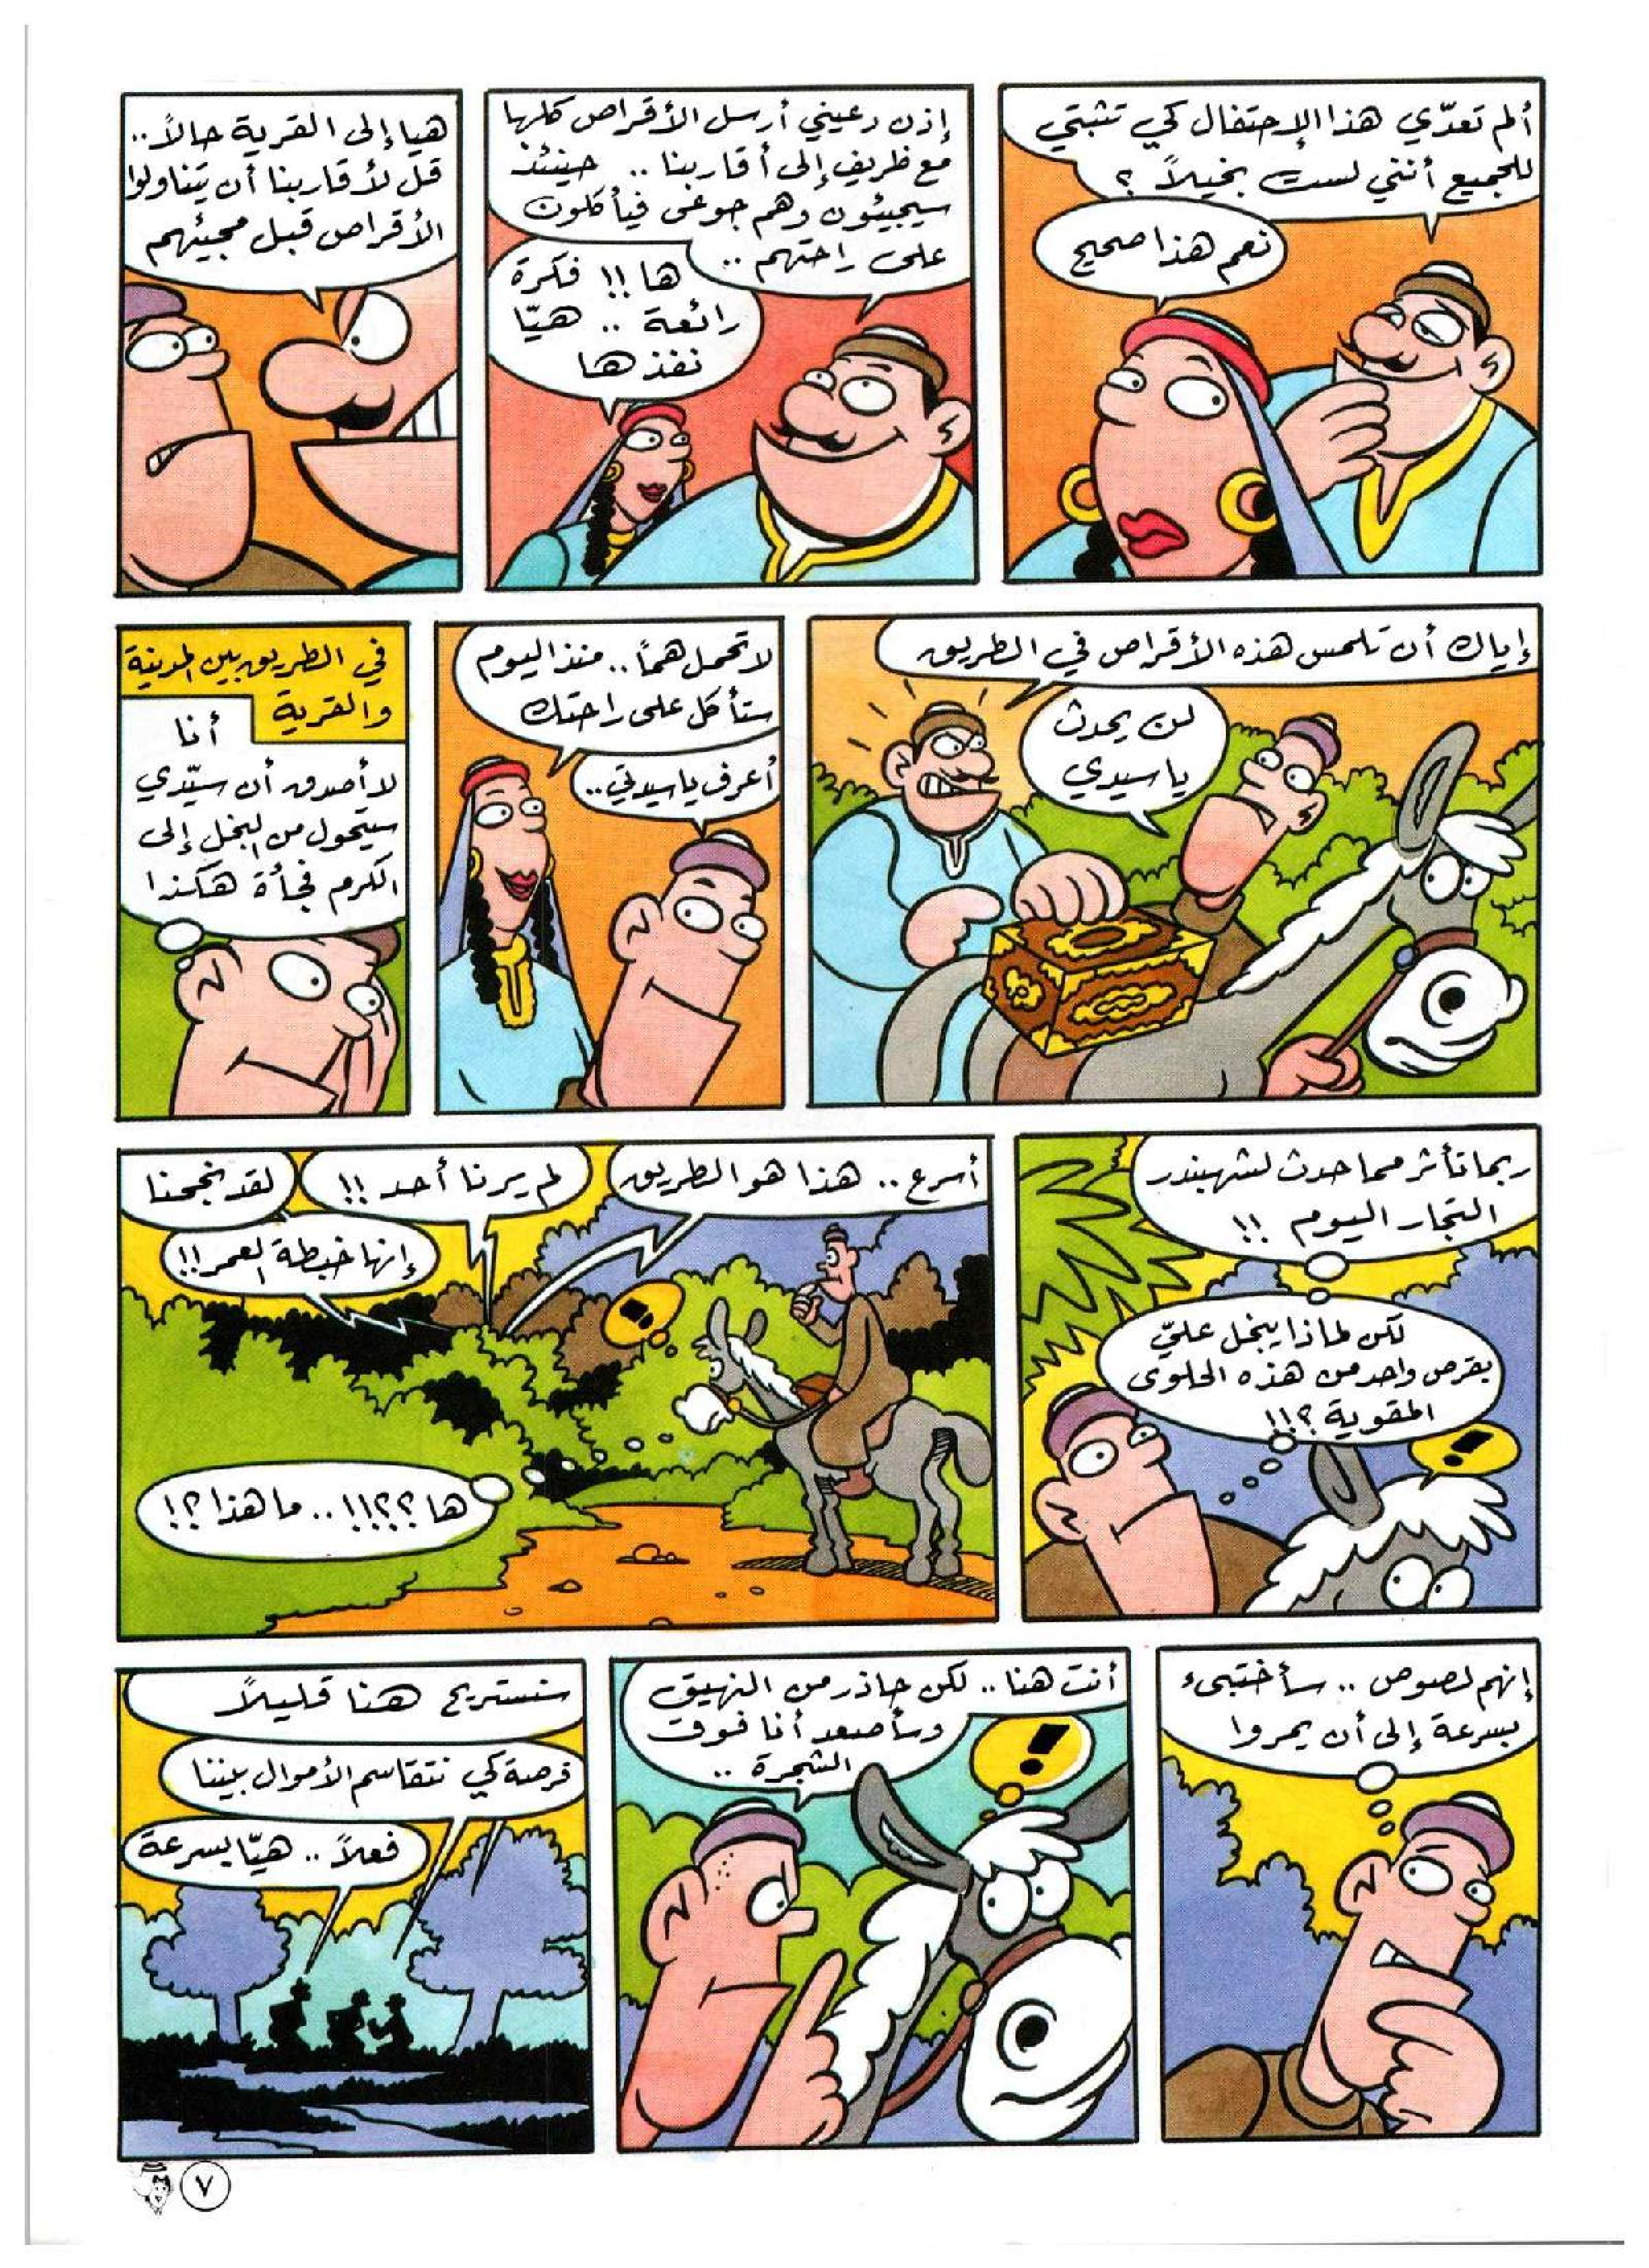 ألم تعدّي هذا الإحتفال كي تثبتي
للجميع أنني لست بخيلاً ؟
نعم هذا صحيح
إذن دعيني أرسل الأقراص كلها
مع ظريف إلى أقاربنا .. حينئذ
سيجيئون وهم جوعى فيأكلون
على راحتهم ..
ها !! فكرة
رائعة .. هيّا
نفذها
هيا إلى القرية حالاً ..
قل لأقاربنا أن يتناولوا
الأقراص قبل مجيئهم
إياك أن تلمس هذه الأقراص في الطريق
لن يحدث
يا سيدي
لا تحمل هماً .. منذ اليوم
ستأكل على راحتك
أعرف يا سيدتي ..
في الطريق بين المدينة
والقرية
أنا
لا أصدق أن سيّدي
سيتحول من البخل إلى
الكرم فجأة هكذا
ربما تأثر مما حدث لشهبندر
التجار اليوم !!
لكن لماذا يبخل عليّ
بقرص واحد من هذه الحلوى
المقوية ؟!!
!
أسرع .. هذا هو الطريق
لم يرنا أحد !!
لقد نجحنا
إنها خبطة العمر !!
!
ها ؟؟!!.. ما هذا ؟!
إنهم لصوص .. سأختبىء
بسرعة إلى أن يمروا
أنت هنا .. لكن حاذر من النهيق
وسأصعد أنا فوق
الشجرة ..
!
سنستريح هنا قليلاً
فرصة كي نتقاسم الأموال بيننا
فعلاً .. هيّا بسرعة
٧